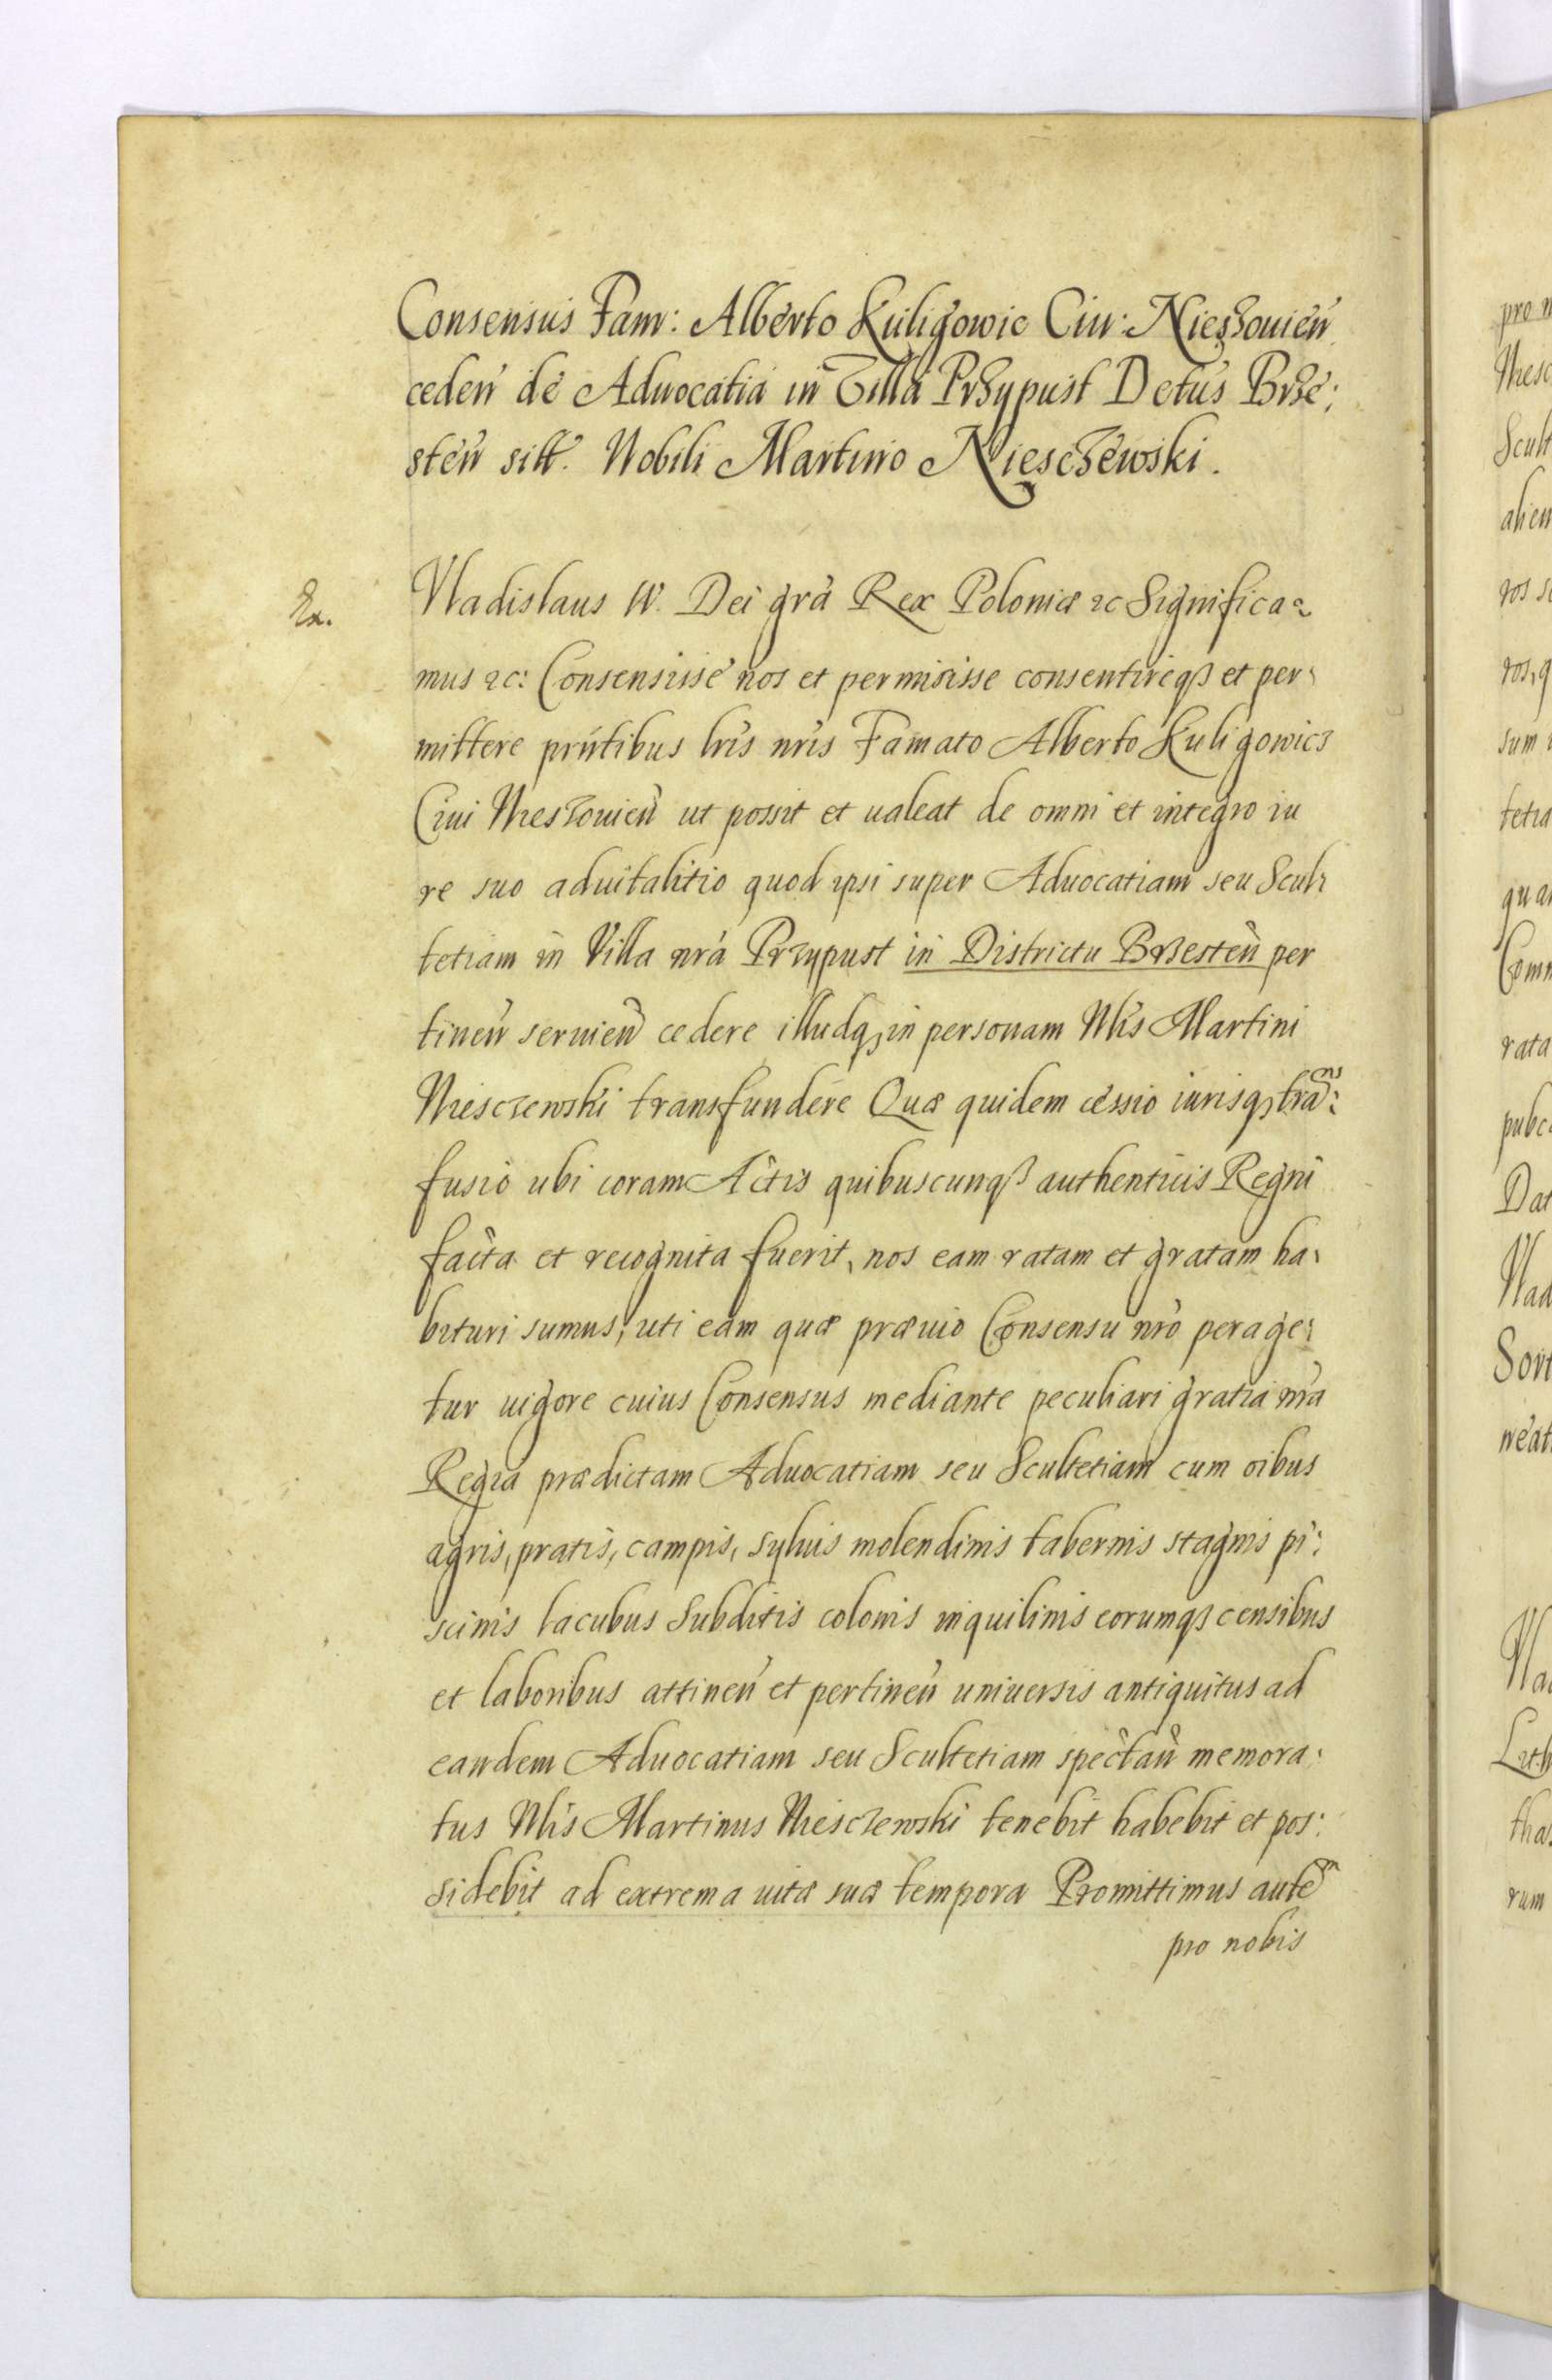 Consensus Fam: Alberto Kuligowic Civ: Nieszouień
cedeń de Aduocatia in Villa Przypust Dctus Brze:
steń sitt. Nobili Martino Niesczewski.
Ex.
Vladislaus IV. Dei gra Rex Poloniæ &c Significa=
mus &c: Consensisse nos et permisisse consentireqȝ et per:
mittere pntibus lris nris Famato Alberto Kuligowicz
Ciui Nieszouień ut possit et ualeat de omni et integro iu
re suo aduitalitio quod ipsi super Aduocatiam seu Scul:
tetiam in Villa nra Przypust in Districtu Brzesteń per
tineń seruień cedere illudqȝ in personam Nlis Martini
Niesczewski transfundere Quæ quidem cessio iurisqȝ trans:
fusio ubi coram Actis quibuscunqȝ authenticis Regni
facta et recognita fuerit, nos eam ratam et gratam ha:
bituri sumus, uti eam quæ præuio Consensu nro perage:
tur uigore cuius Consensus mediante peculiari gratia nra
Regia prædictam Aduocatiam seu Scultetiam cum oibus
agris, pratis, campis, syluis molendinis tabernis stagnis pi:
scinis lacubus Subditis colonis inquilinis eorumqȝ censibus
et laboribus attineń et pertineń uniuersis antiquitus ad
eandem Aduocatiam seu Scultetiam spectań memora:
tus Nlis Martinus Niesczewski tenebit habebit et pos:
sidebit ad extrema uitæ suæ tempora Promittimus autem
pro nobis